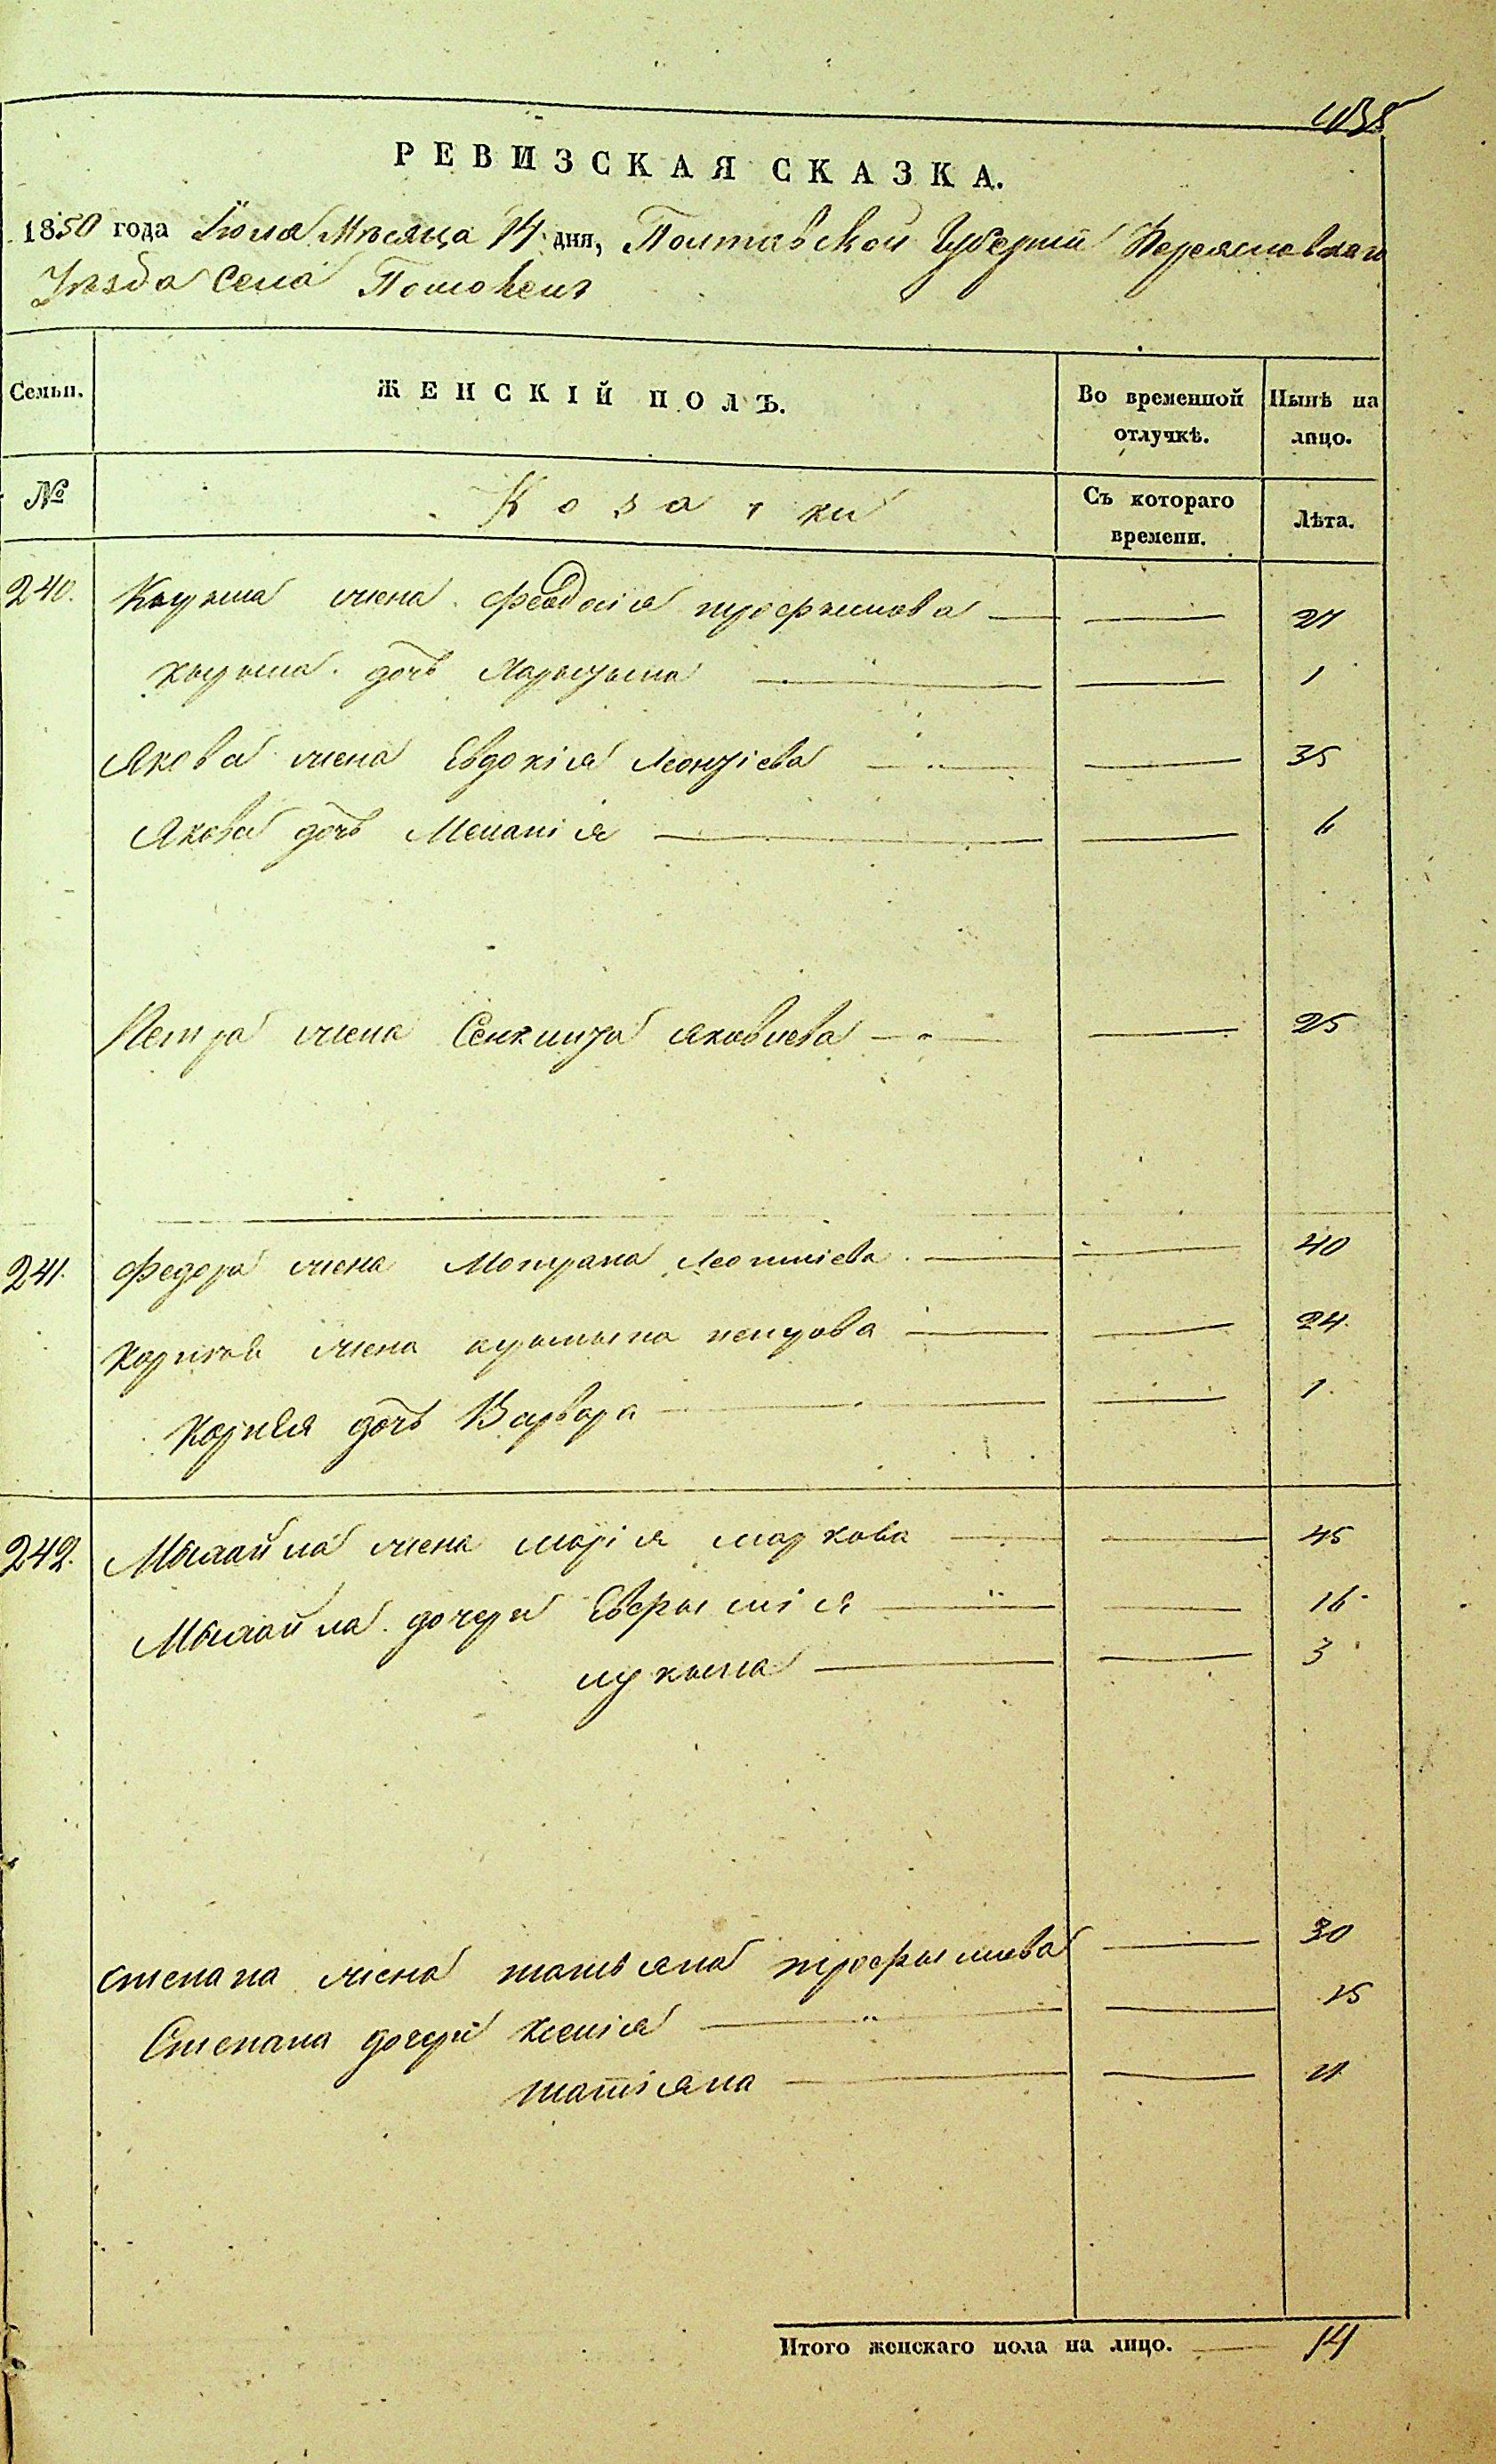 РЕВИЗСКАЯ СКАЗКА.
1850 года Іюля Мѣсяца 14 дня, Полтавской Губерніи Переяславскаго
Уѣзда Села Помоклей
Семьи. ЖЕНСКІЙ ПОЛЪ. Во временной отлучкѣ. Нынѣ на лицо.
№ Козачки Съ котораго времени. Лѣта.
240. жена Феодосія трофимова 27
дочь 1
Якова жена Евдокія Леонтіева 35
Якова дочь Меланія 6
Петра жена яковлева 25
241. Федора жена Мотрона Леонтіева 40
Корнѣя жена петрова 24.
Корнѣя дочь Варвара 1.
242. Михайла жена марія маркова 45
Михайла дочери Евфимія 16
лукія 3
степана жена татьяна трофимова 30
Степана дочери ксенія 15
татіяна 11
Итого женскаго пола на лицо. 14